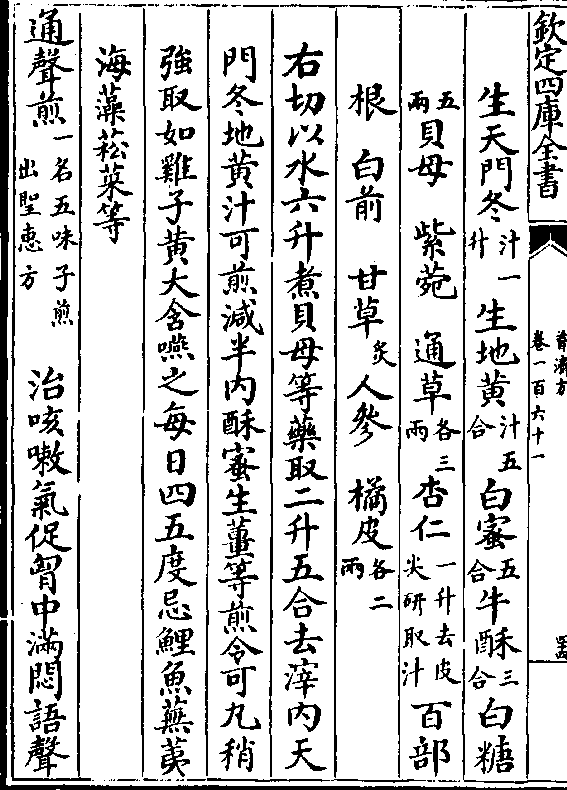 欽定四庫全書
普濟方
卷一百六十一
生天門冬汁一升 生地黃汁五合 白蜜五合 牛酥三合 白糖
五兩 貝母 紫菀 通草各三兩 杏仁一升去皮尖研取汁 百部
根 白前 甘草炙 人參 橘皮各二兩
右切以水六升煮貝母等藥取二升五合去滓内天
門冬地黃汁可煎減半内酥蜜生薑等煎令可丸稍
強取如雞子黃大含嚥之每日四五度忌鯉魚蕪荑
海藻菘菜等
通聲煎一名五味子煎出聖惠方 治咳嗽氣促胷中滿悶語聲